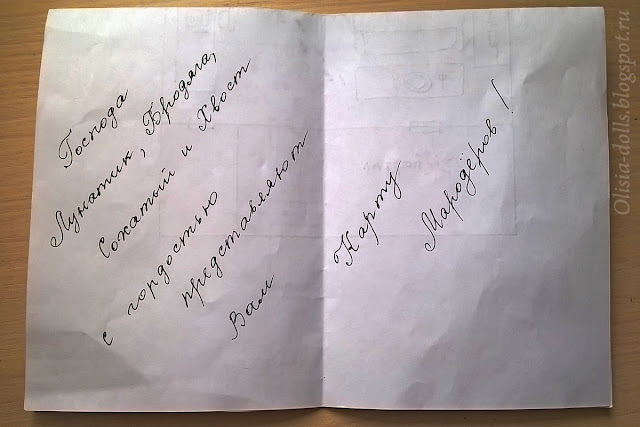 Господа
Лунатик, Бродяга,
Сохатый и Хвост
с гордостью
представляют
Вам
Карту
Мародёров!
Olisia-dolls.blogspot.ru